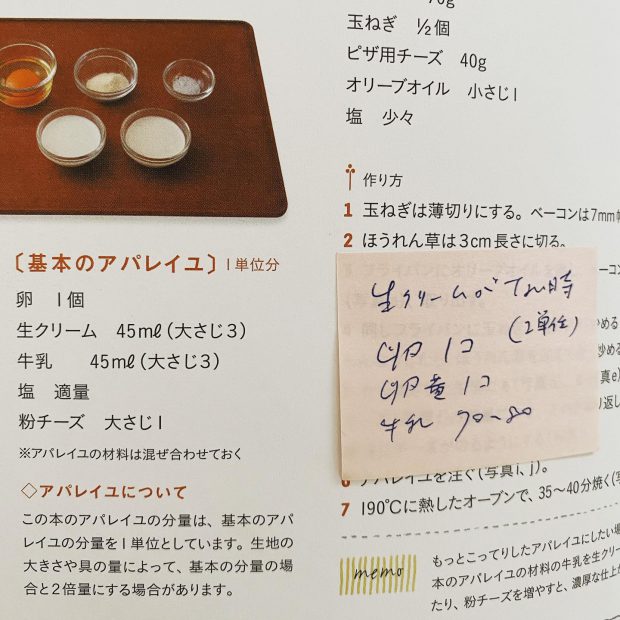 70g
玉ねぎ ½個
ピザ用チーズ 40g
オリーブオイル 小さじ1
塩 少々
作り方
1 玉ねぎは薄切りにする。ベーコンは7mm
2 ほうれん草は3cm長さに切る。
〔基本のアパレイユ〕1単位分
卵 1個
生クリーム 45ml(大さじ3)
牛乳 45ml(大さじ3)
塩 適量
粉チーズ 大さじ1
※アパレイユの材料は混ぜ合わせておく
◇アパレイユについて
この本のアパレイユの分量は、基本のアパ
レイユの分量を1単位としています。生地の
大きさや具の量によって、基本の分量の場
合と2倍量にする場合があります。
生クリームが ない時
(1単位)
卵 1コ
卵黄 1コ
牛乳 70〜80
6 アパレイユを注ぐ(写真i、j)。
7 190℃に熱したオーブンで、35〜40分焼く(写
memo
もっとこってりしたアパレイユにしたい場
本のアパレイユの材料の牛乳を生クリー
たり、粉チーズを増やすと、濃厚な仕上が